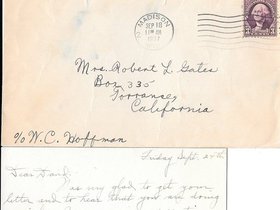 MADISON
SEP 18
11 30 AM
1937
3
Mrs. Robert L. Gates
Box 335
Torrance,
California
c/o W.C. Hoffman
Friday Sept. 24th
Dear Dang,
as my glad to get your
letter and to hear that you are doing